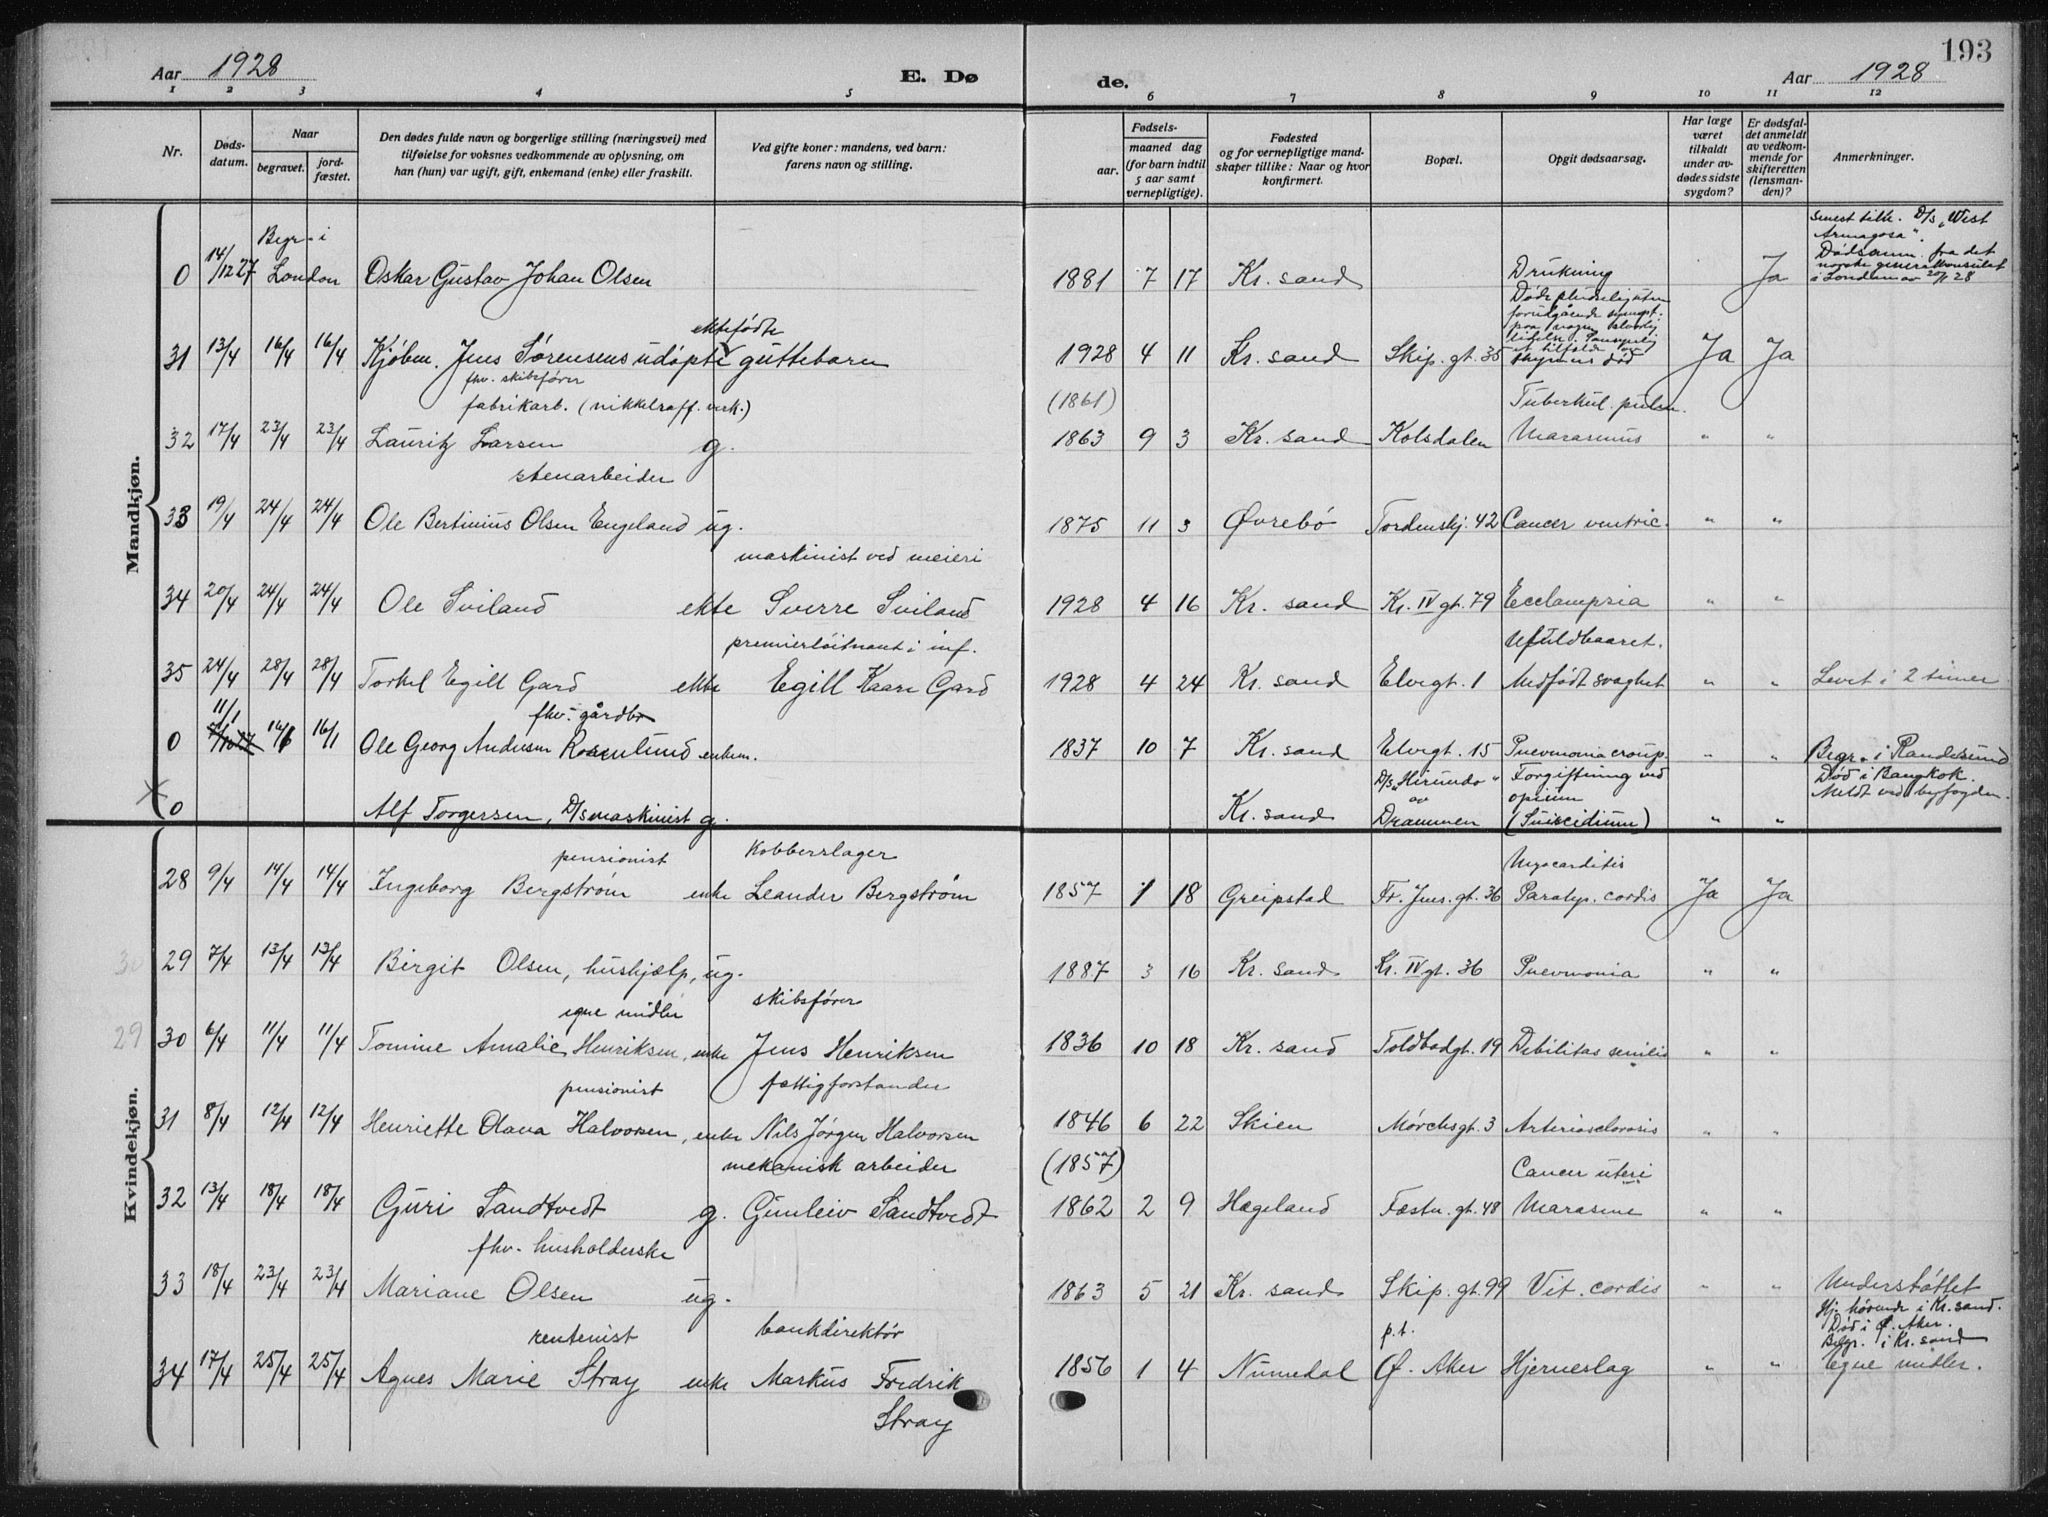 193
Aar 1928
E. Dø
de.
Aar 1928
1 2 3 4 5 6 7 8 9 10 11 12
Nr.
Døds-
datum.
Naar
begravet.
jord-
fæstet.
Den dødes fulde navn og borgerlige stilling (næringsvei) med
tilføielse for voksnes vedkommende av oplysning, om
han (hun) var ugift, gift, enkemand (enke) eller fraskilt.
Ved gifte koner: mandens, ved barn:
farens navn og stilling.
Fødsels-
aar.
maaned dag
(for barn indtil
5 aar samt
vernepligtige).
Fødested
og for vernepligtige mand-
skaper tillike: Naar og hvor
konfirmert.
Bopæl.
Opgit dødsaarsag.
Har læge
været
tilkaldt
under av-
dødes sidste
sygdom?
Er dødsfal-
det anmeldt
av vedkom-
mende for
skifteretten
(lensman-
den)?
Anmerkninger.
Mandkjøn.
senest tilh. D/s „West
Armagosa".
Dødsanm. fra det
norske generalkonsulat
i London av 20/1 28
Begr. i
0 14/12 27 London Oskar Gustav Johan Olsen 1881 7 17 Kr. sand Drukning Ja
Døde pludselig uten
forudgående
ektefødte
31 13/4 16/4 16/4 Kjøbm. Jens Sørensens udøpte guttebarn 1928 4 11 Kr. sand Skip. gt. 35 thymus død Ja Ja
fhv. skibsfører
fabrikarb. (nikkelraff. verk.) (1861) Tuberkul. pulm.
32 17/4 23/4 23/4 Lauritz Larsen g. 1863 9 3 Kr. sand Kolsdalen Marasmus " "
stenarbeider
33 19/4 24/4 24/4 Ole Bertinius Olsen Engeland ug. 1875 11 3 Øvrebø Tordenskj. 42 Cancer ventric. " "
maskinist ved meieri
34 20/4 24/4 24/4 Ole Sviland ekte Sverre Sviland 1928 4 16 Kr. sand Kr. IV gt. 79 Ecclampsia " "
premierløitnant i inf. Ufuldbaaret.
35 24/4 28/4 28/4 Torkel Egill Gard ekte Egill Kaare Gard 1928 4 24 Kr. sand Elvegt. 1 Medfødt svaghet " " Levet i 2 timer
11/1 fhv. gårdbr
0 16/1 16/1 Ole Georg Andersen Rosenlund enkem. 1837 10 7 Kr. sand Elvegt. 15 Pnevmonia croup. " " Begr. i Randesund
D/s „Hirundo" Forgiftning ved Død i Bangkok.
av opium Meldt ved byfogden.
0 Alf Torgersen, D/s maskinist g. Kr. sand Drammen (Suicidium) " "
Kvindekjøn.
pensionist Kobberslager Myocarditis
28 9/4 14/4 14/4 Ingeborg Bergstrøm enke Leander Bergstrøm 1857 1 18 Greipstad Fr. Jens. gt. 36 Paralys. cordis Ja Ja
30 29 7/4 13/4 13/4 Birgit Olsen, hushjælp, ug. 1887 3 16 Kr. sand Kr. IV gt. 36 Pnevmonia " "
egne midler skibsfører
29 30 6/4 11/4 11/4 Tomine Amalie Henriksen, enke Jens Henriksen 1836 10 18 Kr. sand Toldbodgt. 19 Debilitas senilis " "
pensionist fattigforstander
31 8/4 12/4 12/4 Henriette Olava Halvorsen, enke Nils Jørgen Halvorsen 1846 6 22 Skien Mørchsgt. 3 Arteriosclerosis " "
mekanisk arbeider (1857) Cancer uteri
32 13/4 18/4 18/4 Guri Sandtvedt g. Gunleiv Sandtvedt 1862 2 9 Hægeland Fæstn. gt. 48 Marasme " "
fhv. husholderske
33 18/4 23/4 23/4 Mariane Olsen ug. 1863 5 21 Kr. sand Skip. gt. 99 Vit. cordis " " Understøttet
Hj. hørende i Kr. sand.
Død i Ø. Aker.
Begr. i Kr. sand
rentenist bankdirektør p.t.
34 17/4 25/4 25/4 Agnes Marie Stray enke Markus Fredrik 1856 1 4 Numedal Ø. Aker Hjerneslag " " Egne midler.
Stray